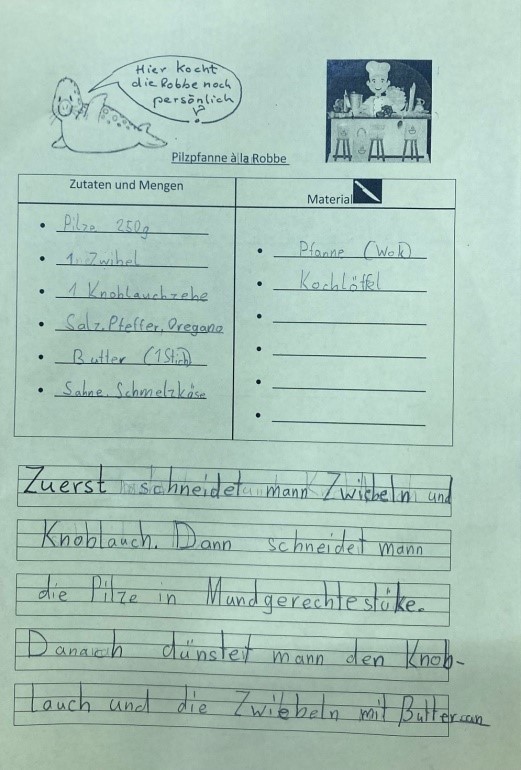 Hier kocht
die Robbe noch
persönlich
!
Pilzpfanne à la Robbe
Zutaten und Mengen
Material
Pilze 250g
1 Zwibel
1 Knoblauchzehe
Salz, Pfeffer, Oregano
Butter (1 Stich)
Sahne, Schmelzkäse
Pfanne (Wok)
Kochlöffel
Zuerst schneidet mann Zwiebeln und
Knoblauch. Dann schneidet mann
die Pilze in Mundgerechtestüke.
Danach dünstet mann den Knob-
lauch und die Zwiebeln mit Butter an